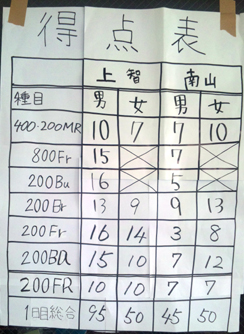 得点表
上智 南山
種目 男 女 男 女
400·200MR 10 7 7 10
800Fr 15 7
200Bu 16 5
200Br 13 9 9 13
200Fr 16 14 3 8
200Ba 15 10 7 12
200FR 10 10 7 7
1日目総合 95 50 45 50